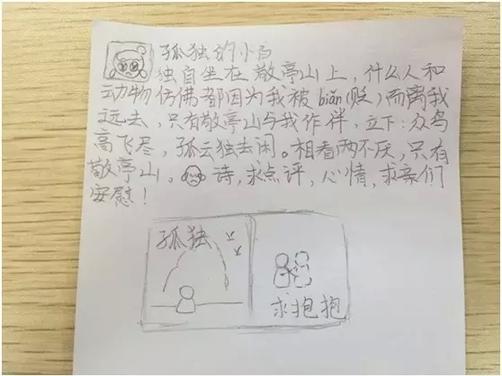 孤独的小白
独自坐在敬亭山上,什么人和
动物仿佛都因为我被biǎn(贬)而离我
远去,只有敬亭山与我作伴,立下:众鸟
高飞尽,孤云独去闲。相看两不厌,只有
敬亭山。诗,求点评,心情,求亲们
安慰!
孤独
求抱抱